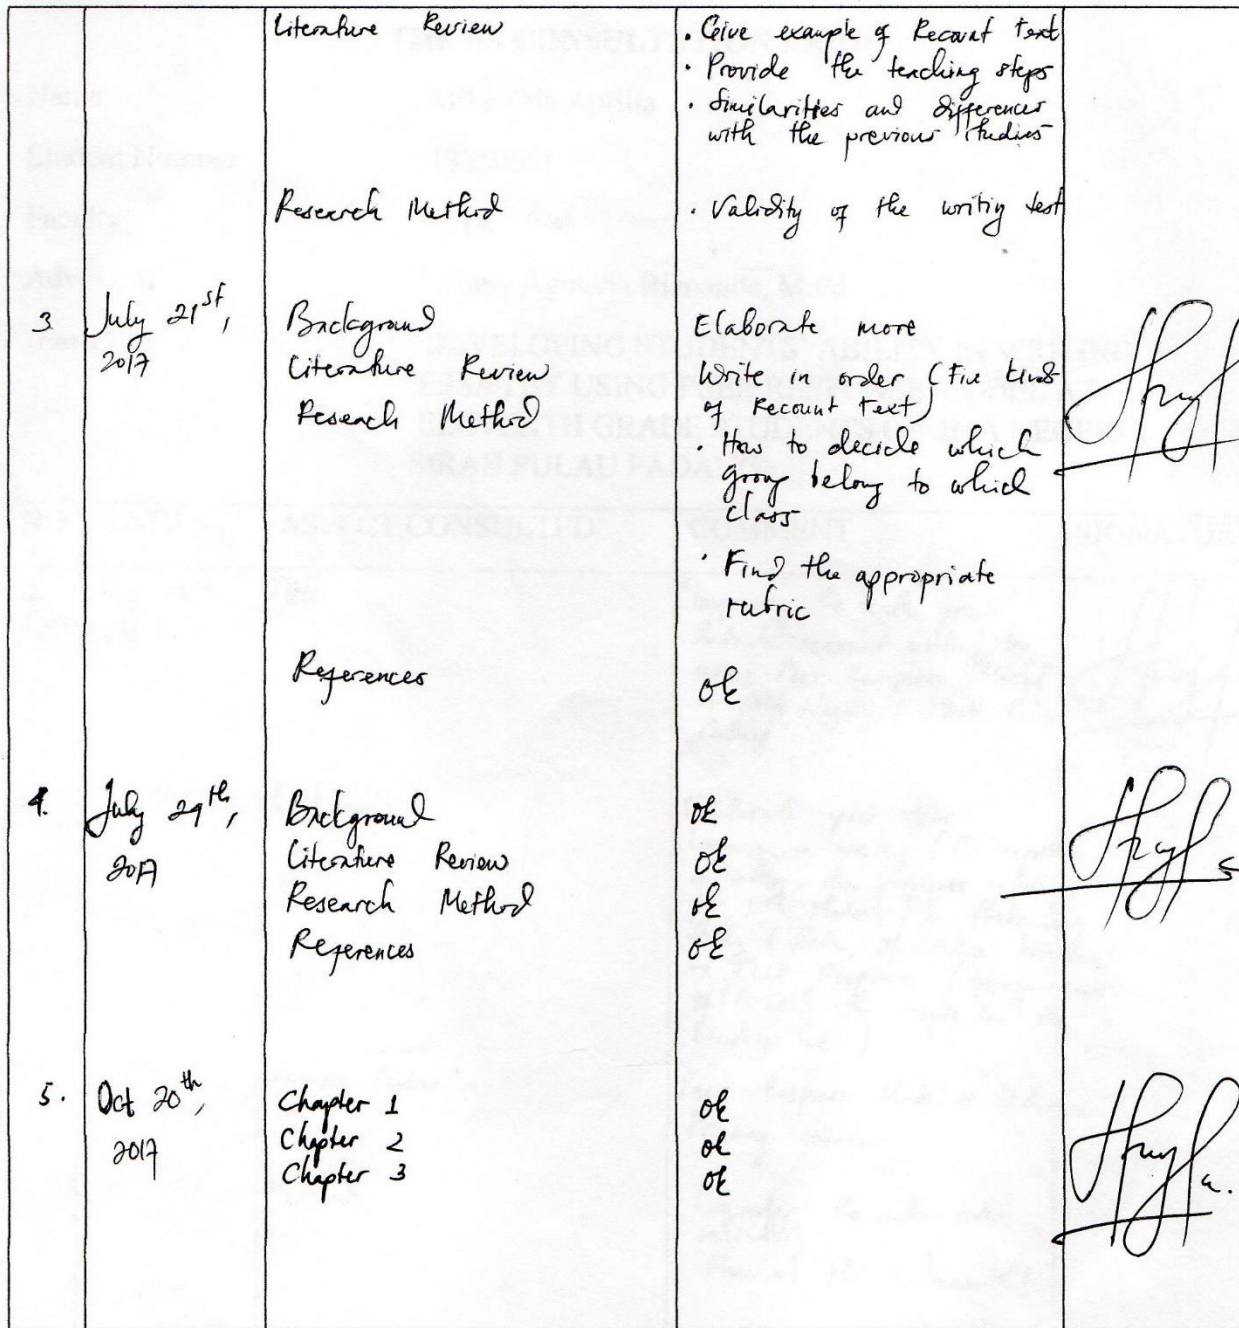 Literature Review
• Give example of Recount Text
• Provide the teaching steps
• Similarities and differences
with the previous studies
Research Method
• Validity of the writing test
3
July 21st,
2017
Background
Elaborate more
Literature Review
Write in order (Five kinds
of Recount Text)
Research Method
• How to decide which
group belong to which
class
• Find the appropriate
rubric
References
ok
4.
July 29th,
2017
Background
ok
Literature Review
ok
Research Method
ok
References
ok
5.
Oct 20th,
2017
Chapter 1
ok
Chapter 2
ok
Chapter 3
ok